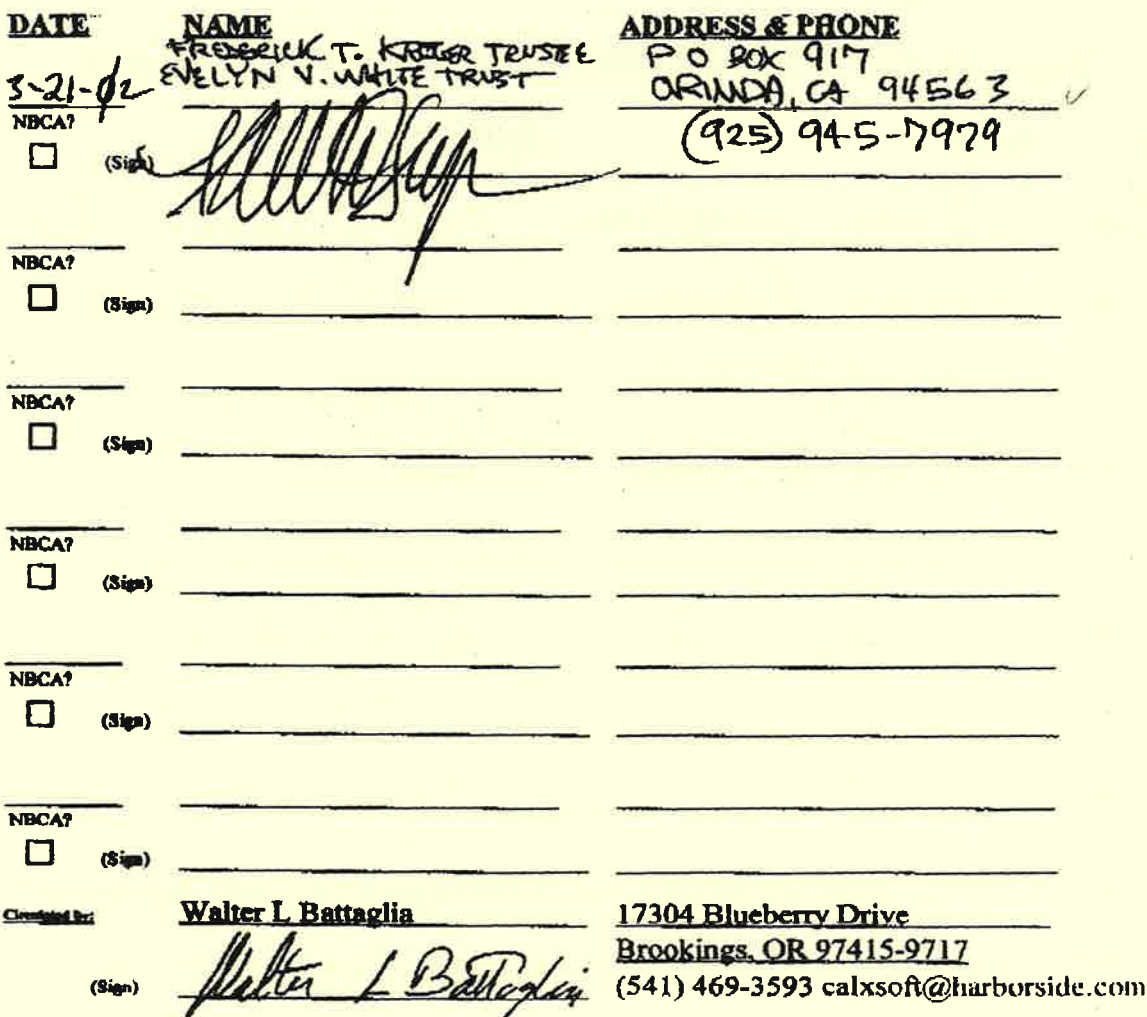 DATE NAME ADDRESS & PHONE
FREDERICK T. TRUSTEE P O BOX 917
3-21-02 EVELYN V. WHITE TRUST ORINDA, CA 94563
NBCA? (925) 945-7979
(Sign)
NBCA?
(Sign)
NBCA?
(Sign)
NBCA?
(Sign)
NBCA?
(Sign)
NBCA?
(Sign)
Circulated by: Walter L Battaglia 17304 Blueberry Drive
Brookings, OR 97415-9717
(Sign) Walter L Battaglia (541) 469-3593 calxsoft@harborside.com